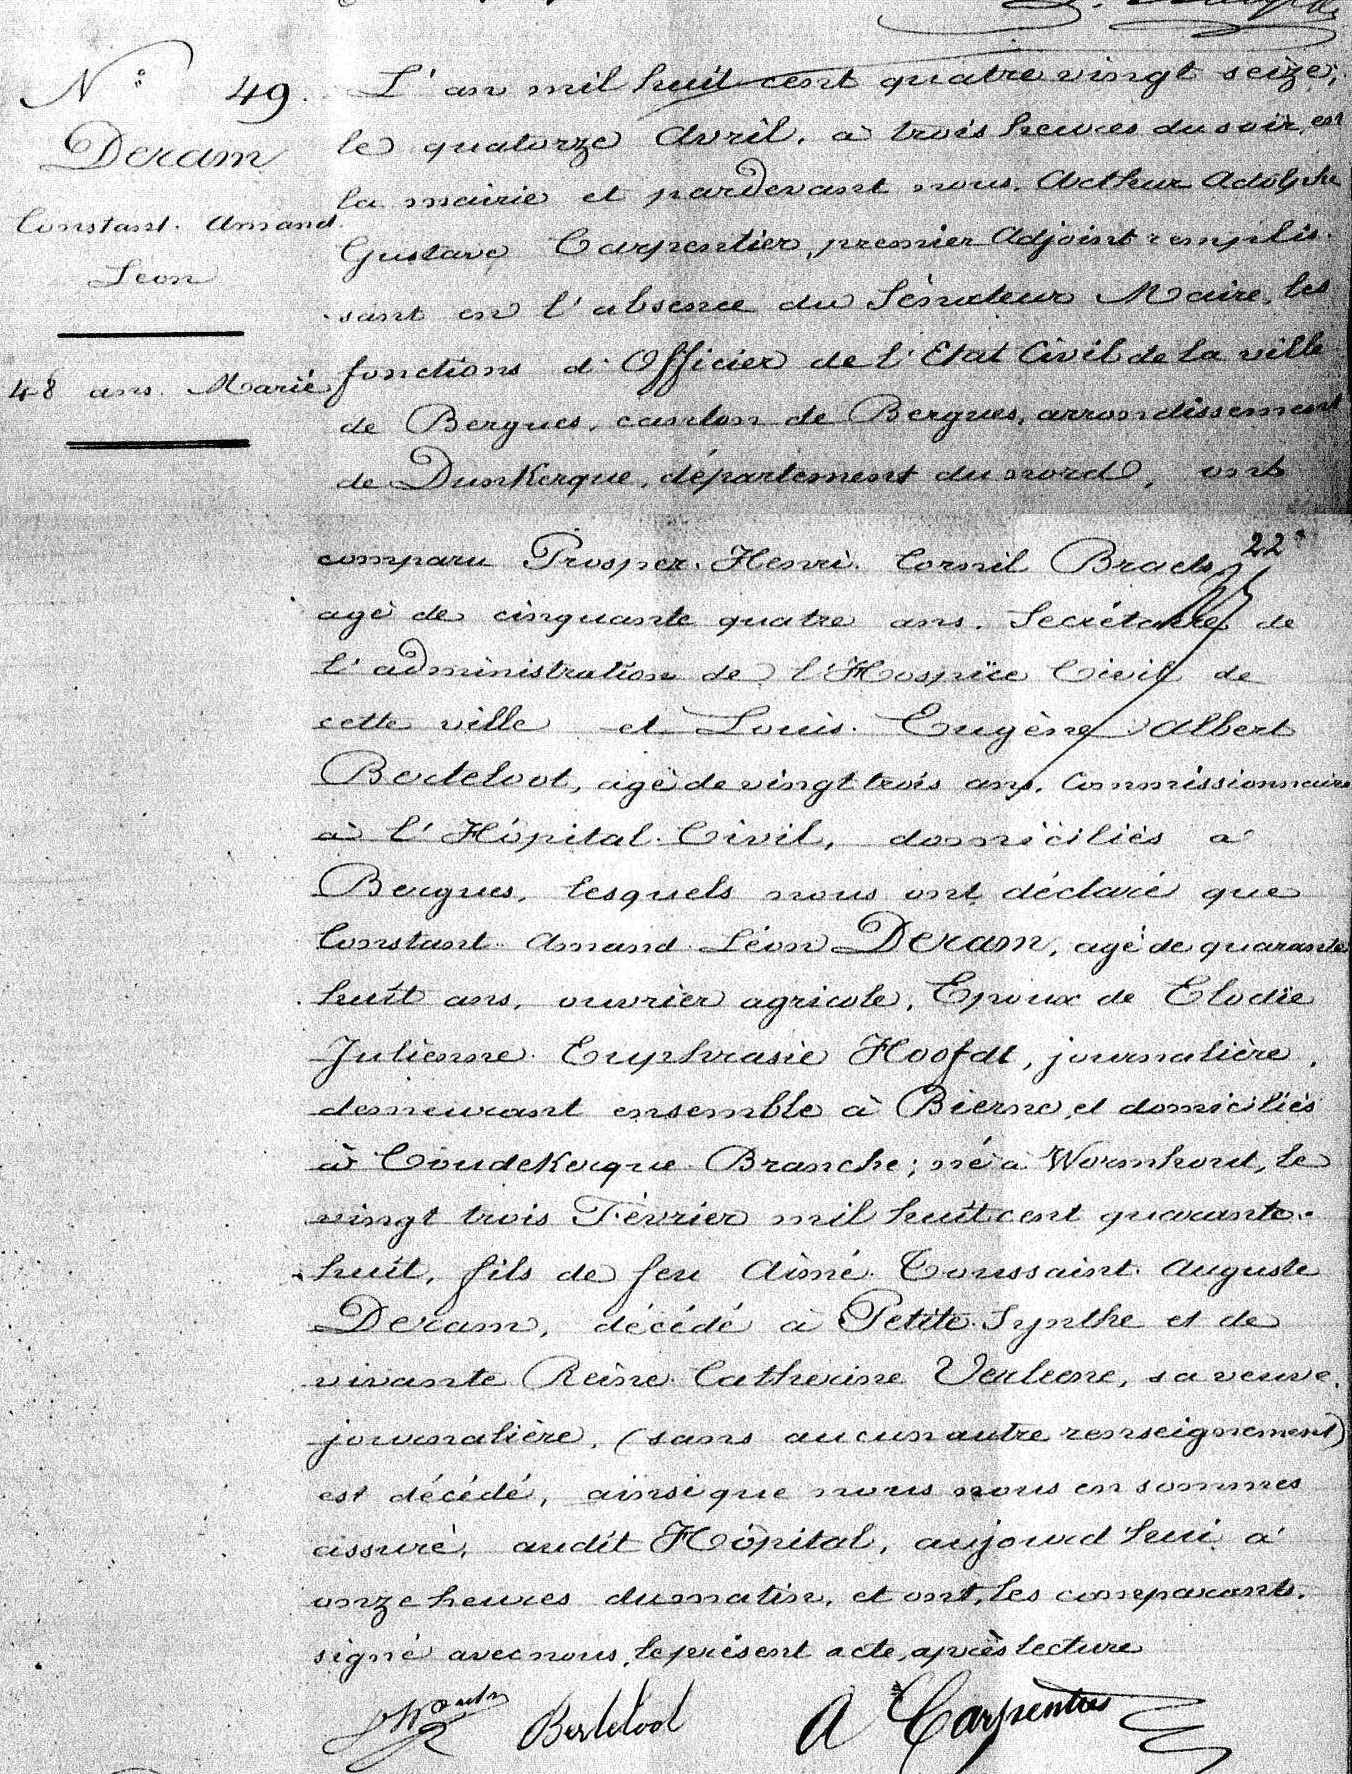 N° 49.
Deram
Constant. Amand
Leon
48 ans. Marié
L'an mil huit cent quatre vingt seize,
le quatorze Avril, à trois heures du soir, en
la mairie et pardevant nous. Arthur Adolphe
Gustave Carpentier, premier Adjoint remplis-
sant en l'absence du Sénateur Maire, les
fonctions d'Officier de l'Etat Civil de la ville
de Bergues, canton de Bergues, arrondissement
de Dunkerque, département du nord, ont
22
comparu Prosper. Henri. Cornil Braels
agé de cinquante quatre ans. Secrétaire de
l'administration de l'Hospice Civil de
cette ville et Louis. Eugène Albert
Berteloot, agé de vingt trois ans, Commissionnaire
à l'Hôpital Civil, domiciliés à
Bergues, lesquels nous ont déclaré que
Constant Amand Léon Deram, agé de quarante
huit ans, ouvrier agricole, Epoux de Elodie
Julienne Euphrasie Hoofdt, journalière,
demeurant ensemble à Bierne, et domiciliés
à Coudekerque Branche; né à Wormhout, le
vingt trois Février mil huit cent quarante-
huit, fils de feu Aimé Toussaint Auguste
Deram, décédé à Petite Synthe et de
vivante Reine Catherine Verleene, sa veuve,
journalière, (sans aucun autre renseignement)
est décédé, ainsi que nous nous en sommes
assuré, audit Hôpital, aujourd'hui à
onze heures du matin, et ont, les comparants,
signé avec nous, le présent acte, après lecture
Berteloot A Carpentier